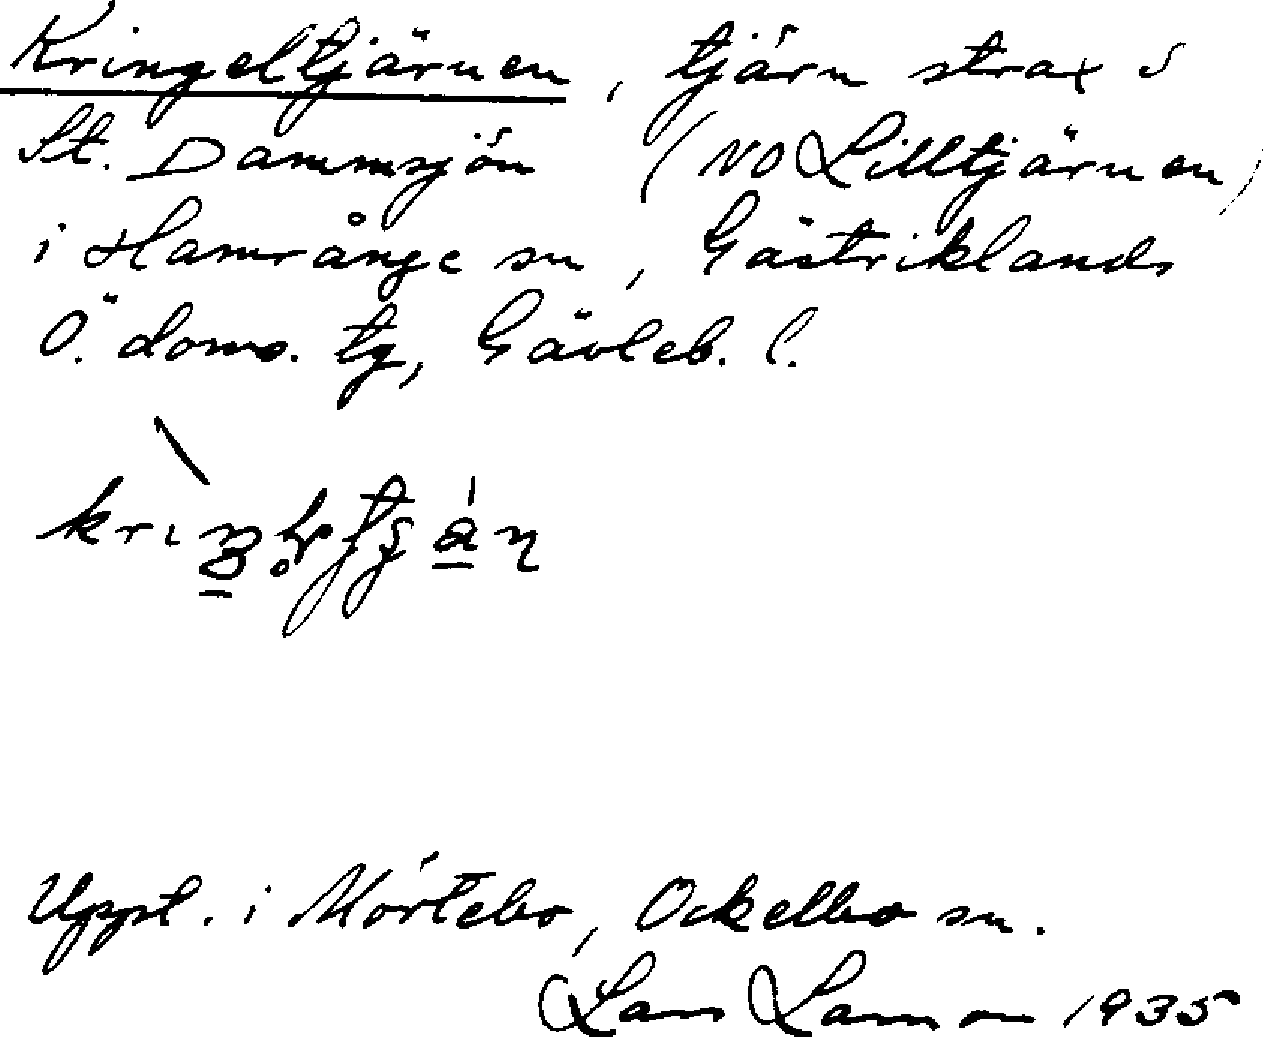 Kringeltjärnen, tjärn strax ö
St. Dammsjön (NO Lilltjärnen)
i Hamrånge sn, Gästriklands
Ö. doms. tg, Gävleb. l.
Uppt. i Mörtebo, Ockelbo sn.
Lars Larsson 1935